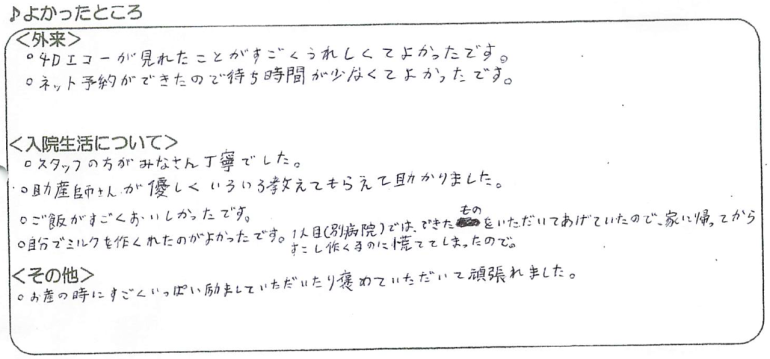 ♪よかったところ
<外来>
○4Dエコーが見れたことがすごくうれしくてよかったです。
○ネット予約ができたので待ち時間が少なくてよかったです。
<入院生活について>
○スタッフの方がみなさん丁寧でした。
○助産師さんが優しくいろいろ教えてもらえて助かりました。
○ご飯がすごくおいしかったです。
○自分でミルクを作くれたのがよかったです。1人目(別病院)では、できたものをいただいてあげていたので、家に帰ってから
すこし作くるのに慌ててしまったので。
<その他>
○お産の時にすごくいっぱい励ましていただいたり褒めていただいて頑張れました。